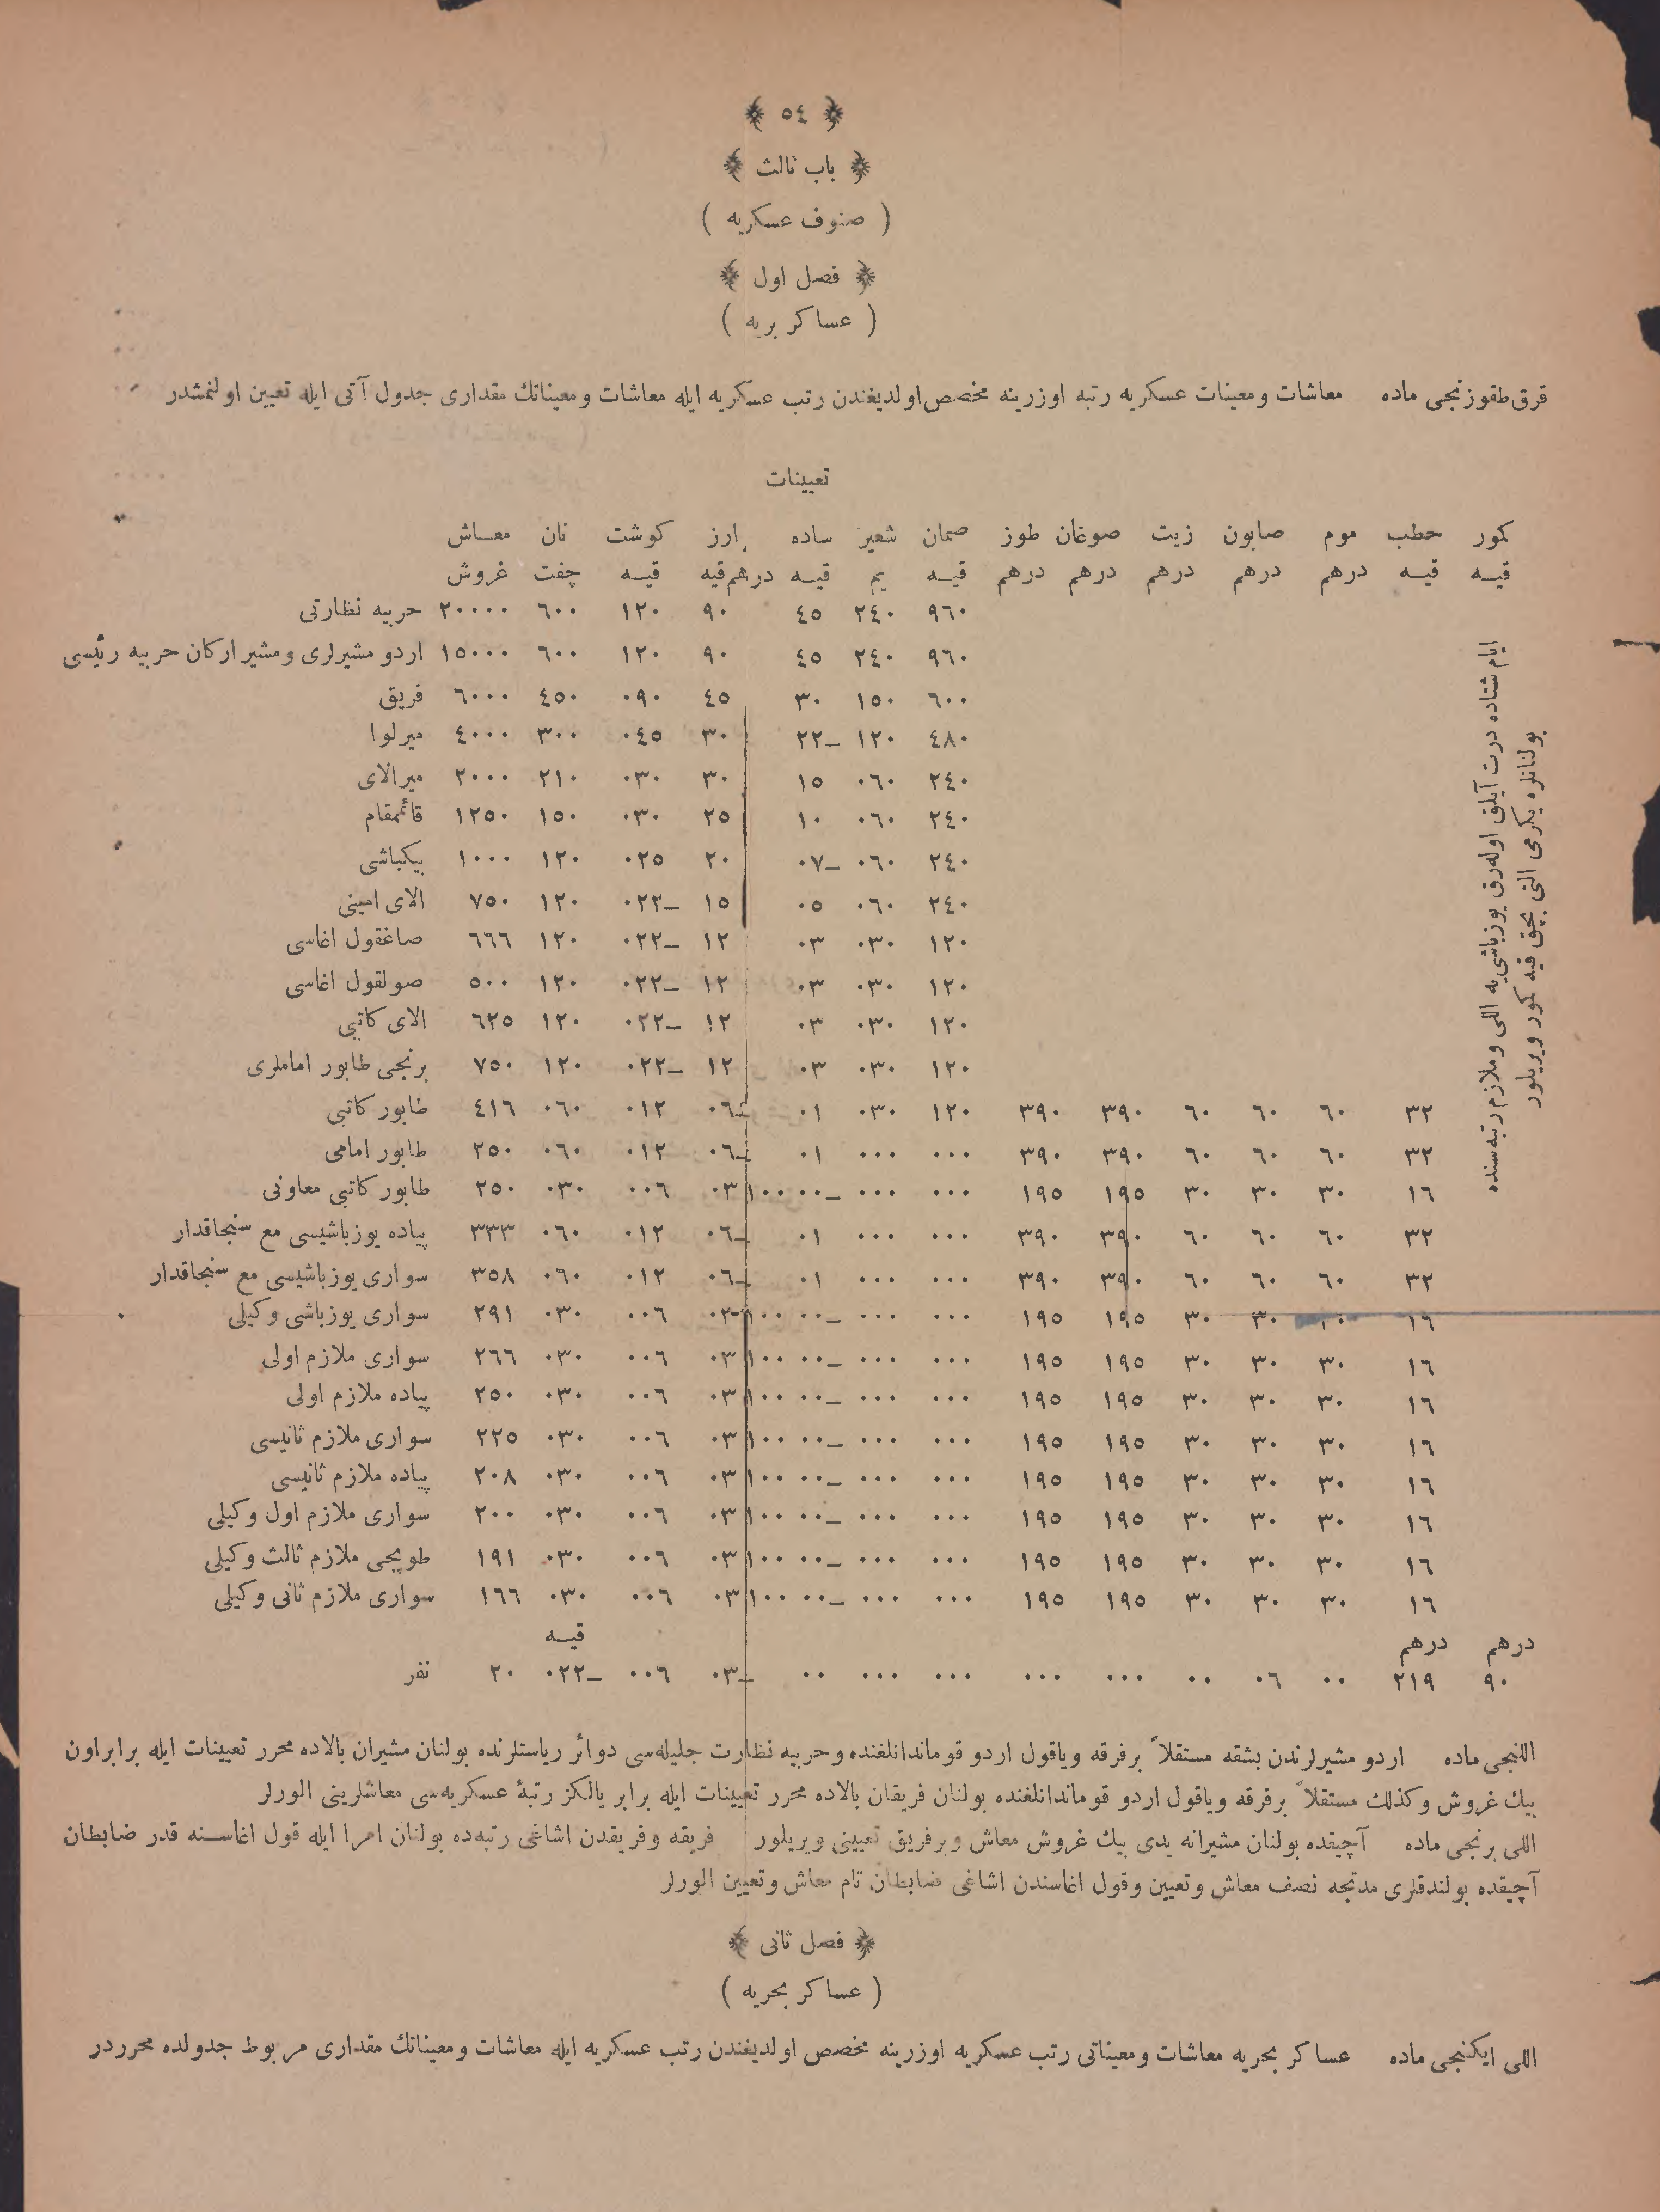 ﴿ ٥٤ ﴾
﴿ باب ثالث ﴾
( صنوف عسكريه )
﴿ فصل اول ﴾
( عساكر بريه )
قرق طقوزنجى ماده معاشات ومعينات عسكريه رتبه اوزرينه مخصص اولديغندن رتب عسكريه ايله معاشات ومعيناتك مقدارى جدول آتى ايله تعيين اولنمشدر
تعيينات
كمور حطب موم صابون زيت صوغان طوز صمان شعير ساده ارز كوشت نان معاش
قيه قيه درهم درهم درهم درهم درهم قيه يم قيه درهم قيه قيه چفت غروش
٩٦٠ ٢٤٠ ٤٥ ٩٠ ١٢٠ ٦٠٠ ٢٠٠٠٠ حربيه نظارتى
٩٦٠ ٢٤٠ ٤٥ ٩٠ ١٢٠ ٦٠٠ ١٥٠٠٠ اردو مشيرلرى ومشير اركان حربيه رئيسى
٦٠٠ ١٥٠ ٣٠ ٤٥ ٠٩٠ ٤٥٠ ٦٠٠٠ فريق
٤٨٠ ١٢٠ ٢٢_ ٣٠ ٠٤٥ ٣٠٠ ٤٠٠٠ ميرلوا
٢٤٠ ٠٦٠ ١٥ ٣٠ ٠٣٠ ٢١٠ ٢٠٠٠ ميرالاى
٢٤٠ ٠٦٠ ١٠ ٢٥ ٠٣٠ ١٥٠ ١٢٥٠ قائممقام
٢٤٠ ٠٦٠ ٠٧_ ٢٠ ٠٢٥ ١٢٠ ١٠٠٠ بيكباشى
٢٤٠ ٠٦٠ ٠٥ ١٥ ٠٢٢_ ١٢٠ ٧٥٠ الاى امينى
١٢٠ ٠٣٠ ٠٣ ١٢ ٠٢٢_ ١٢٠ ٦٦٦ صاغقول اغاسى
١٢٠ ٠٣٠ ٠٣ ١٢ ٠٢٢_ ١٢٠ ٥٠٠ صولقول اغاسى
١٢٠ ٠٣٠ ٠٣ ١٢ ٠٢٢_ ١٢٠ ٦٢٥ الاى كاتبى
١٢٠ ٠٣٠ ٠٣ ١٢ ٠٢٢_ ١٢٠ ٧٥٠ برنجى طابور اماملرى
٣٢ ٦٠ ٦٠ ٦٠ ٣٩٠ ٣٩٠ ١٢٠ ٠٣٠ ٠١ ٠٦_ ٠١٢ ٠٦٠ ٤١٦ طابور كاتبى
٣٢ ٦٠ ٦٠ ٦٠ ٣٩٠ ٣٩٠ ٠٠٠ ٠٠٠ ٠١ ٠٦_ ٠١٢ ٠٦٠ ٢٥٠ طابور امامى
١٦ ٣٠ ٣٠ ٣٠ ١٩٥ ١٩٥ ٠٠٠ ٠٠٠ ٠٠_ ١٠٠ ٠٣ ٠٠٦ ٠٣٠ ٢٥٠ طابور كاتبى معاونى
٣٢ ٦٠ ٦٠ ٦٠ ٣٩٠ ٣٩٠ ٠٠٠ ٠٠٠ ٠١ ٠٦_ ٠١٢ ٠٦٠ ٣٣٣ پياده يوزباشيسى مع سنجاقدار
٣٢ ٦٠ ٦٠ ٦٠ ٣٩٠ ٣٩٠ ٠٠٠ ٠٠٠ ٠١ ٠٦_ ٠١٢ ٠٦٠ ٣٥٨ سوارى يوزباشيسى مع سنجاقدار
١٦ ٣٠ ٣٠ ٣٠ ١٩٥ ١٩٥ ٠٠٠ ٠٠٠ ٠٠_ ١٠٠ ٠٠٦ ٠٣٠ ٢٩١ سوارى يوزباشى وكيلى
١٦ ٣٠ ٣٠ ٣٠ ١٩٥ ١٩٥ ٠٠٠ ٠٠٠ ٠٠_ ١٠٠ ٠٣ ٠٠٦ ٠٣٠ ٢٦٦ سوارى ملازم اولى
١٦ ٣٠ ٣٠ ٣٠ ١٩٥ ١٩٥ ٠٠٠ ٠٠٠ ٠٠_ ١٠٠ ٠٣ ٠٠٦ ٠٣٠ ٢٥٠ پياده ملازم اولى
١٦ ٣٠ ٣٠ ٣٠ ١٩٥ ١٩٥ ٠٠٠ ٠٠٠ ٠٠_ ١٠٠ ٠٣ ٠٠٦ ٠٣٠ ٢٢٥ سوارى ملازم ثانيسى
١٦ ٣٠ ٣٠ ٣٠ ١٩٥ ١٩٥ ٠٠٠ ٠٠٠ ٠٠_ ١٠٠ ٠٣ ٠٠٦ ٠٣٠ ٢٠٨ پياده ملازم ثانيسى
١٦ ٣٠ ٣٠ ٣٠ ١٩٥ ١٩٥ ٠٠٠ ٠٠٠ ٠٠_ ١٠٠ ٠٣ ٠٠٦ ٠٣٠ ٢٠٠ سوارى ملازم اول وكيلى
١٦ ٣٠ ٣٠ ٣٠ ١٩٥ ١٩٥ ٠٠٠ ٠٠٠ ٠٠_ ١٠٠ ٠٣ ٠٠٦ ٠٣٠ ١٩١ طوپجى ملازم ثالث وكيلى
١٦ ٣٠ ٣٠ ٣٠ ١٩٥ ١٩٥ ٠٠٠ ٠٠٠ ٠٠_ ١٠٠ ٠٣ ٠٠٦ ٠٣٠ ١٦٦ سوارى ملازم ثانى وكيلى
درهم درهم قيه
٩٠ ٢١٩ ٠٠ ٠٦ ٠٠ ٠٠٠ ٠٠٠ ٠٠٠ ٠٠٠ ٠٠ ٠٣_ ٠٠٦ ٠٢٢_ ٢٠ نفر
ايام شتاده درت آيلق اوله‌رق يوزباشى‌يه اللى وملازم رتبه‌سنده
بولنانلره يكرمى التى بچق قيه كمور ويريلور
اللنجى ماده اردو مشيرلرندن بشقه مستقلاً برفرقه وياقول اردو قوماندانلغنده وحربيه نظارت جليله‌سى دوائر رياستلرنده بولنان مشيران بالاده محرر تعيينات ايله برابر اون
بيك غروش وكذلك مستقلاً برفرقه وياقول اردو قوماندانلغنده بولنان فريقان بالاده محرر تعيينات ايله برابر يالكز رتبۀ عسكريه‌سى معاشلرينى الورلر
اللى برنجى ماده آچيقده بولنان مشيرانه يدى بيك غروش معاش وبرفريق تعيينى ويريلور فريقه وفريقدن اشاغى رتبه‌ده بولنان امرا ايله قول اغاسنه قدر ضابطان
آچيقده بولندقلرى مدتجه نصف معاش وتعيين وقول اغاسندن اشاغى ضابطان تام معاش وتعيين الورلر
﴿ فصل ثانى ﴾
( عساكر بحريه )
اللى ايكنجى ماده عساكر بحريه معاشات ومعيناتى رتب عسكريه اوزرينه مخصص اولديغندن رتب عسكريه ايله معاشات ومعيناتك مقدارى مربوط جدولده محرردر